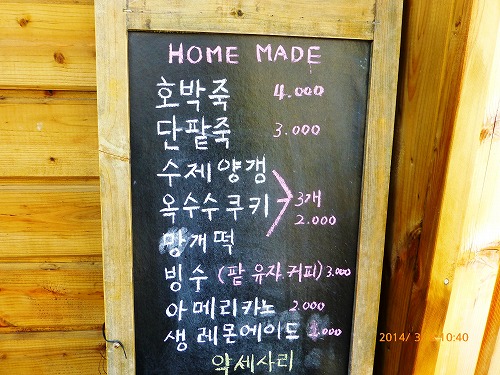 HOME MADE
호박죽 4.000
단팥죽 3.000
수제양갱
옥수수쿠키 3개 2.000
망개떡
빙수 (팥 유자.커피) 3.000
아메리카노 2.000
생레몬에이드
악세사리
2014/ 10:40